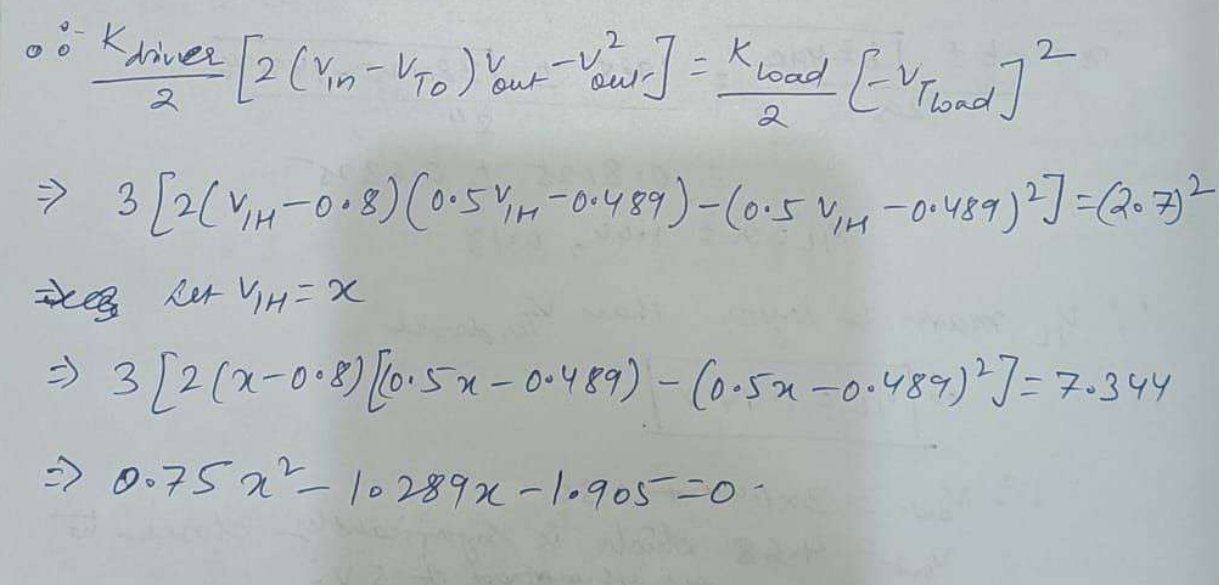 ∴ K_driver/2 [2(V_in - V_T0) V_out - V_out^2] = K_load/2 [-V_T load]^2
⇒ 3[2(V_IH - 0.8)(0.5 V_IH - 0.489) - (0.5 V_IH - 0.489)^2] = (2.7)^2
Let V_IH = x
⇒ 3[2(x - 0.8)[(0.5x - 0.489) - (0.5x - 0.489)^2] = 7.344
⇒ 0.75x^2 - 1.289x - 1.905 = 0